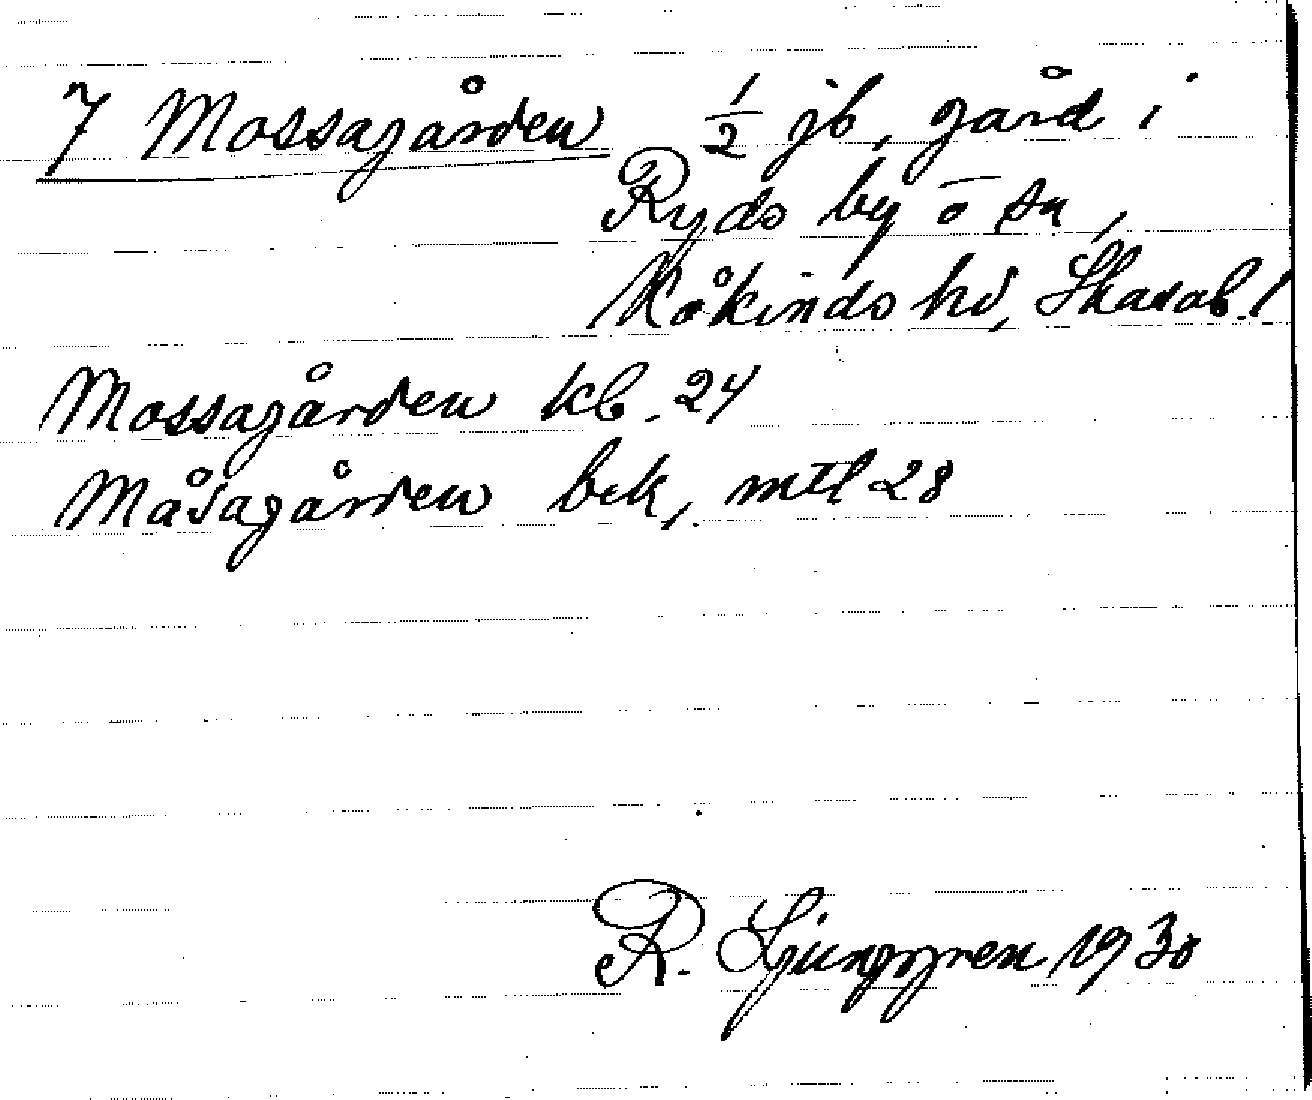 7 Mossagården 1/2 jb, gård i
Ryds by o sn,
Kåkinds hd, Skarab. l
Mossagården kb. 24
Måsagården bek, mtl 28
R. Ljunggren 1930